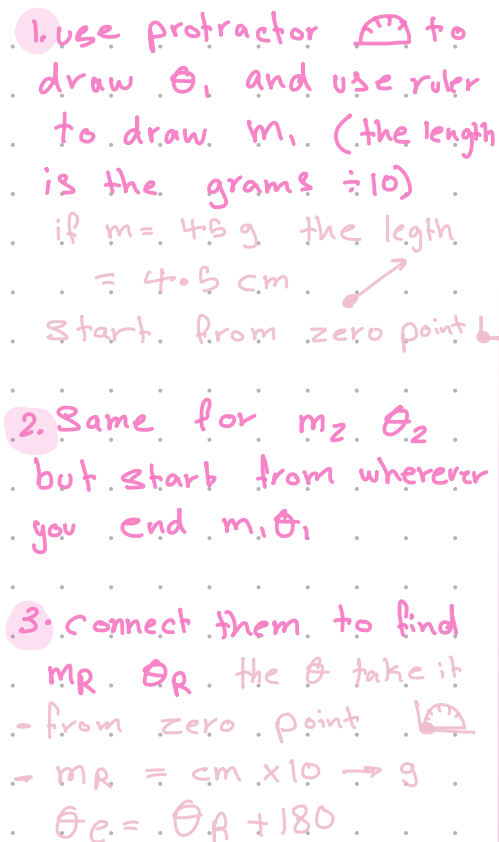 1. use protractor to
draw θ₁ and use ruler
to draw m₁ (the length
is the grams ÷10)
if m= 45 g the legth
= 4.5 cm
start from zero point
2. Same for m₂ θ₂
but start from wherever
you end m₁θ₁
3. connect them to find
mR θR the θ take it
- from zero point
- mR = cm ×10 → g
θe = θR +180